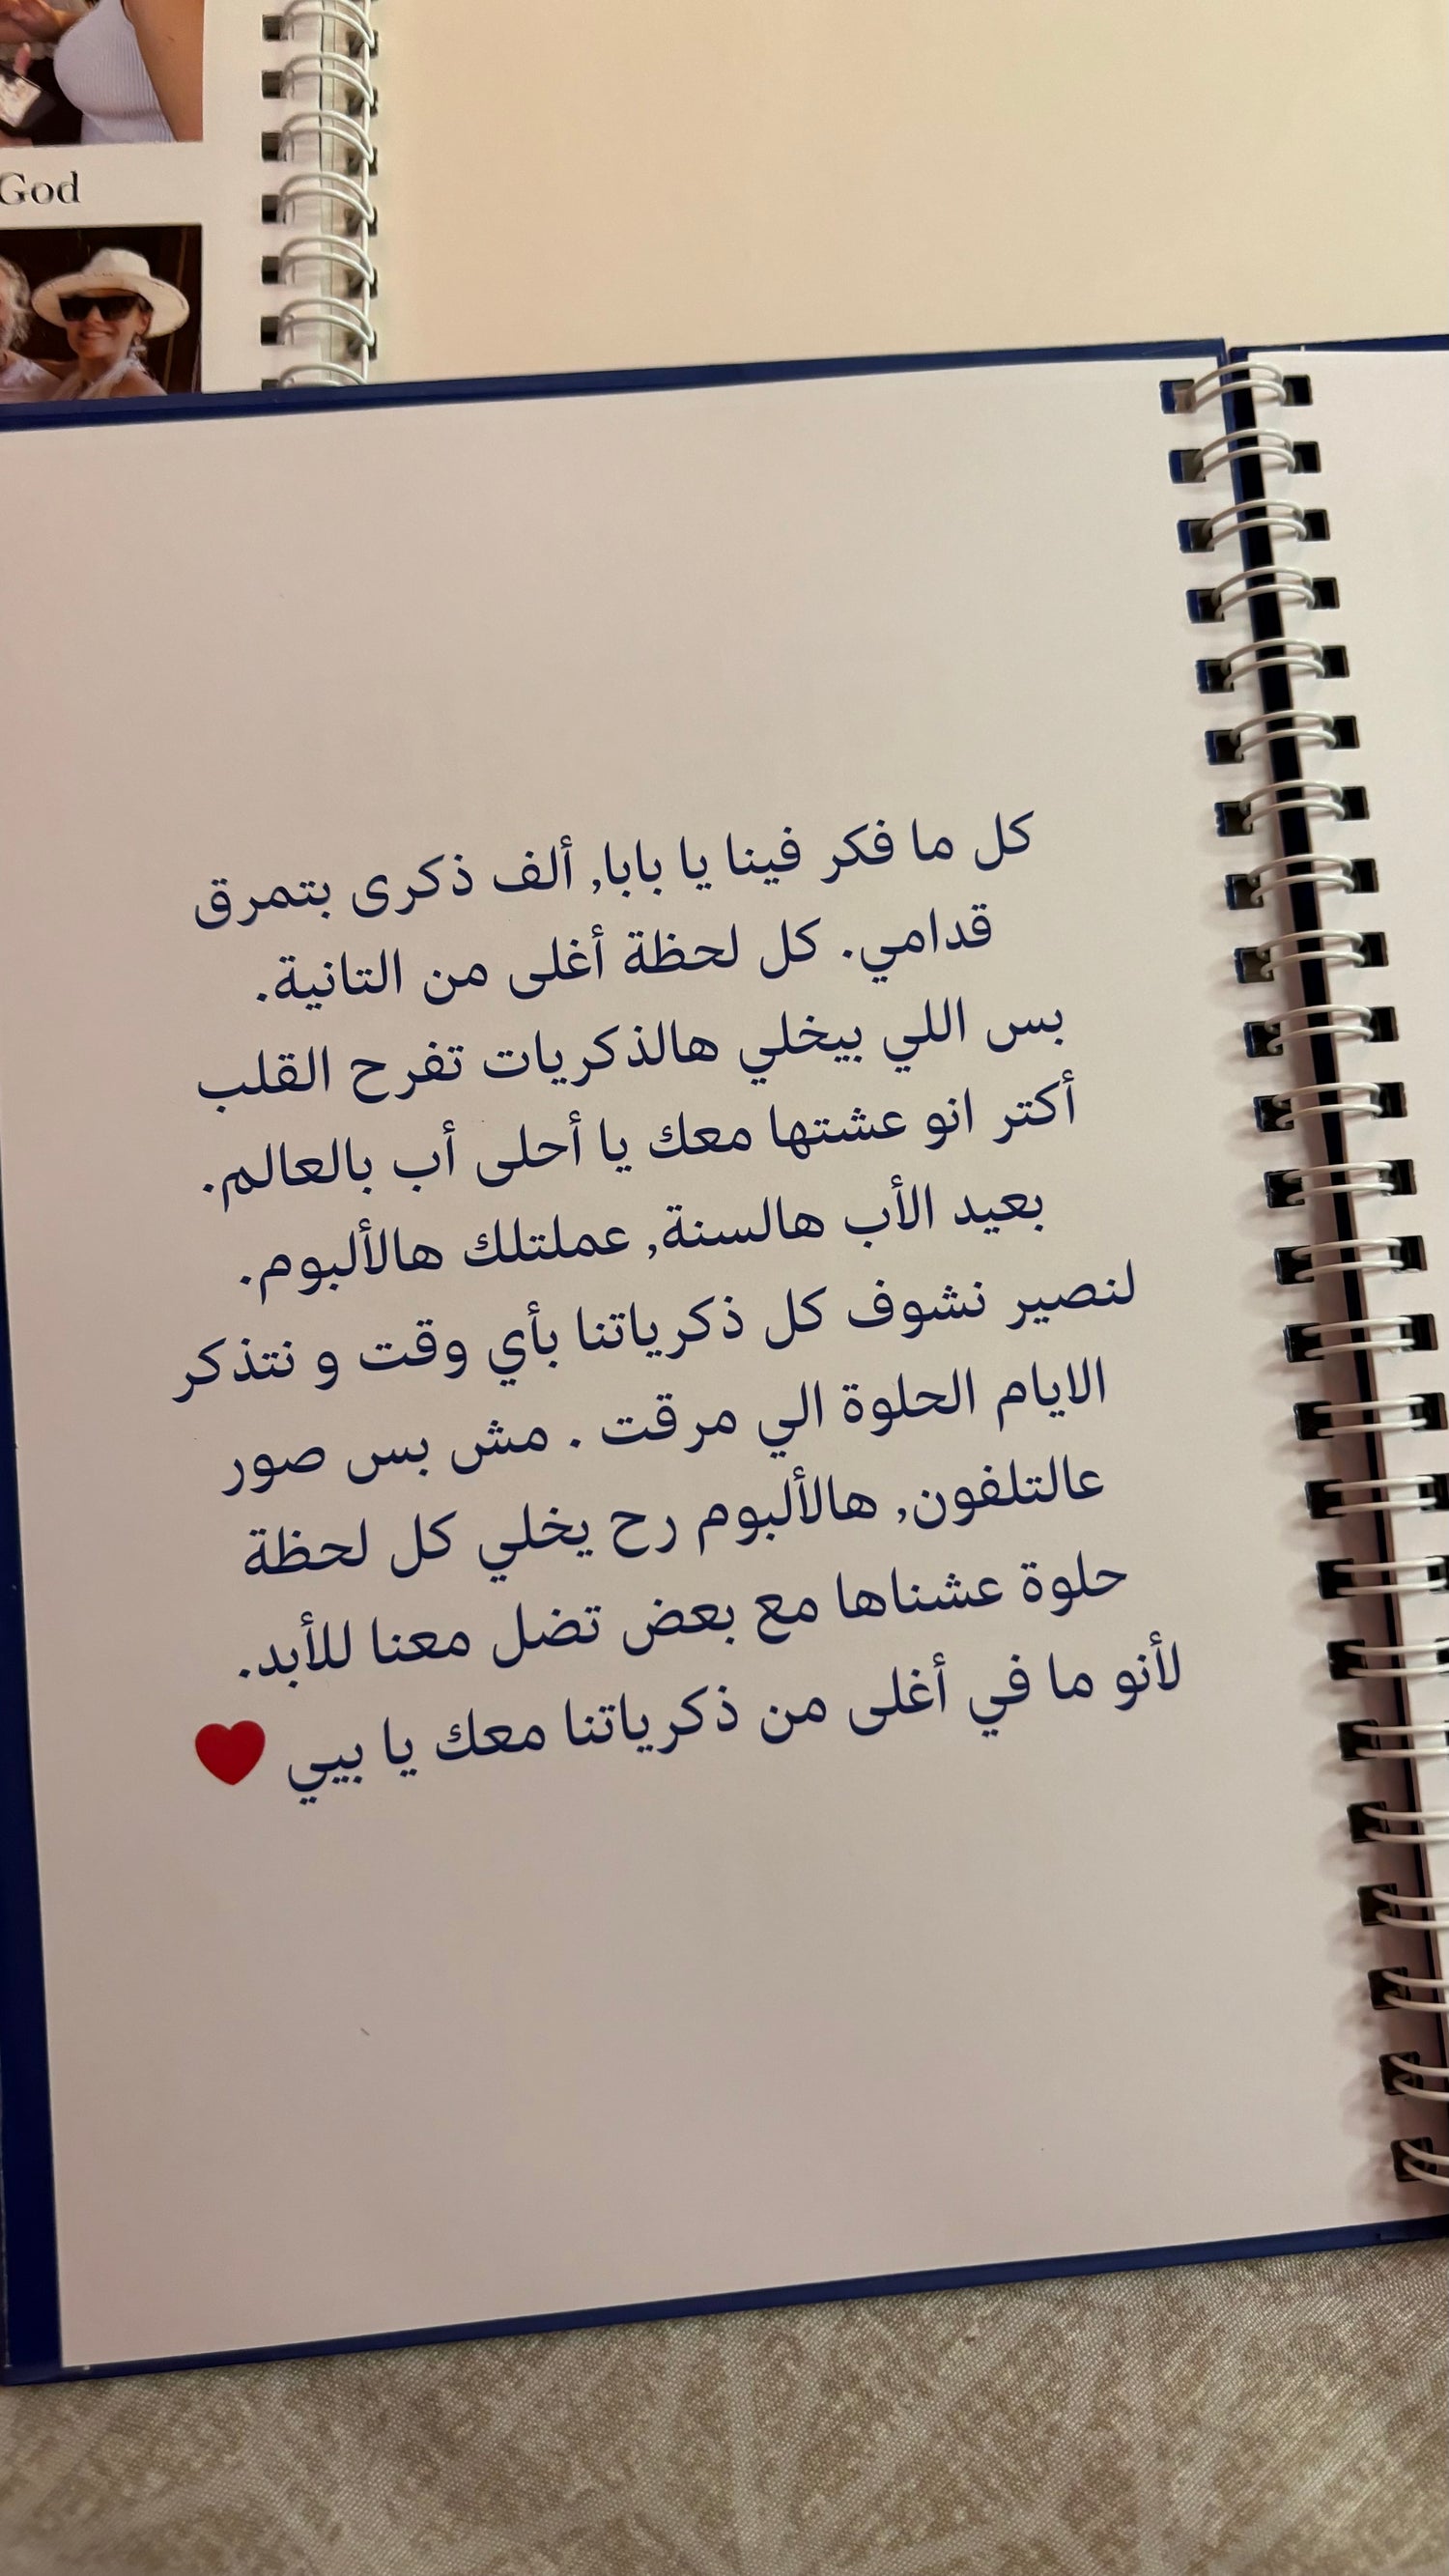 God
كل ما فكر فينا يا بابا, ألف ذكرى بتمرق
قدامي. كل لحظة أغلى من التانية.
بس اللي بيخلي هالذكريات تفرح القلب
أكتر انو عشتها معك يا أحلى أب بالعالم.
بعيد الأب هالسنة, عملتلك هالألبوم.
لنصير نشوف كل ذكرياتنا بأي وقت و نتذكر
الايام الحلوة الي مرقت . مش بس صور
عالتلفون, هالألبوم رح يخلي كل لحظة
حلوة عشناها مع بعض تضل معنا للأبد.
لأنو ما في أغلى من ذكرياتنا معك يا بيي ❤️